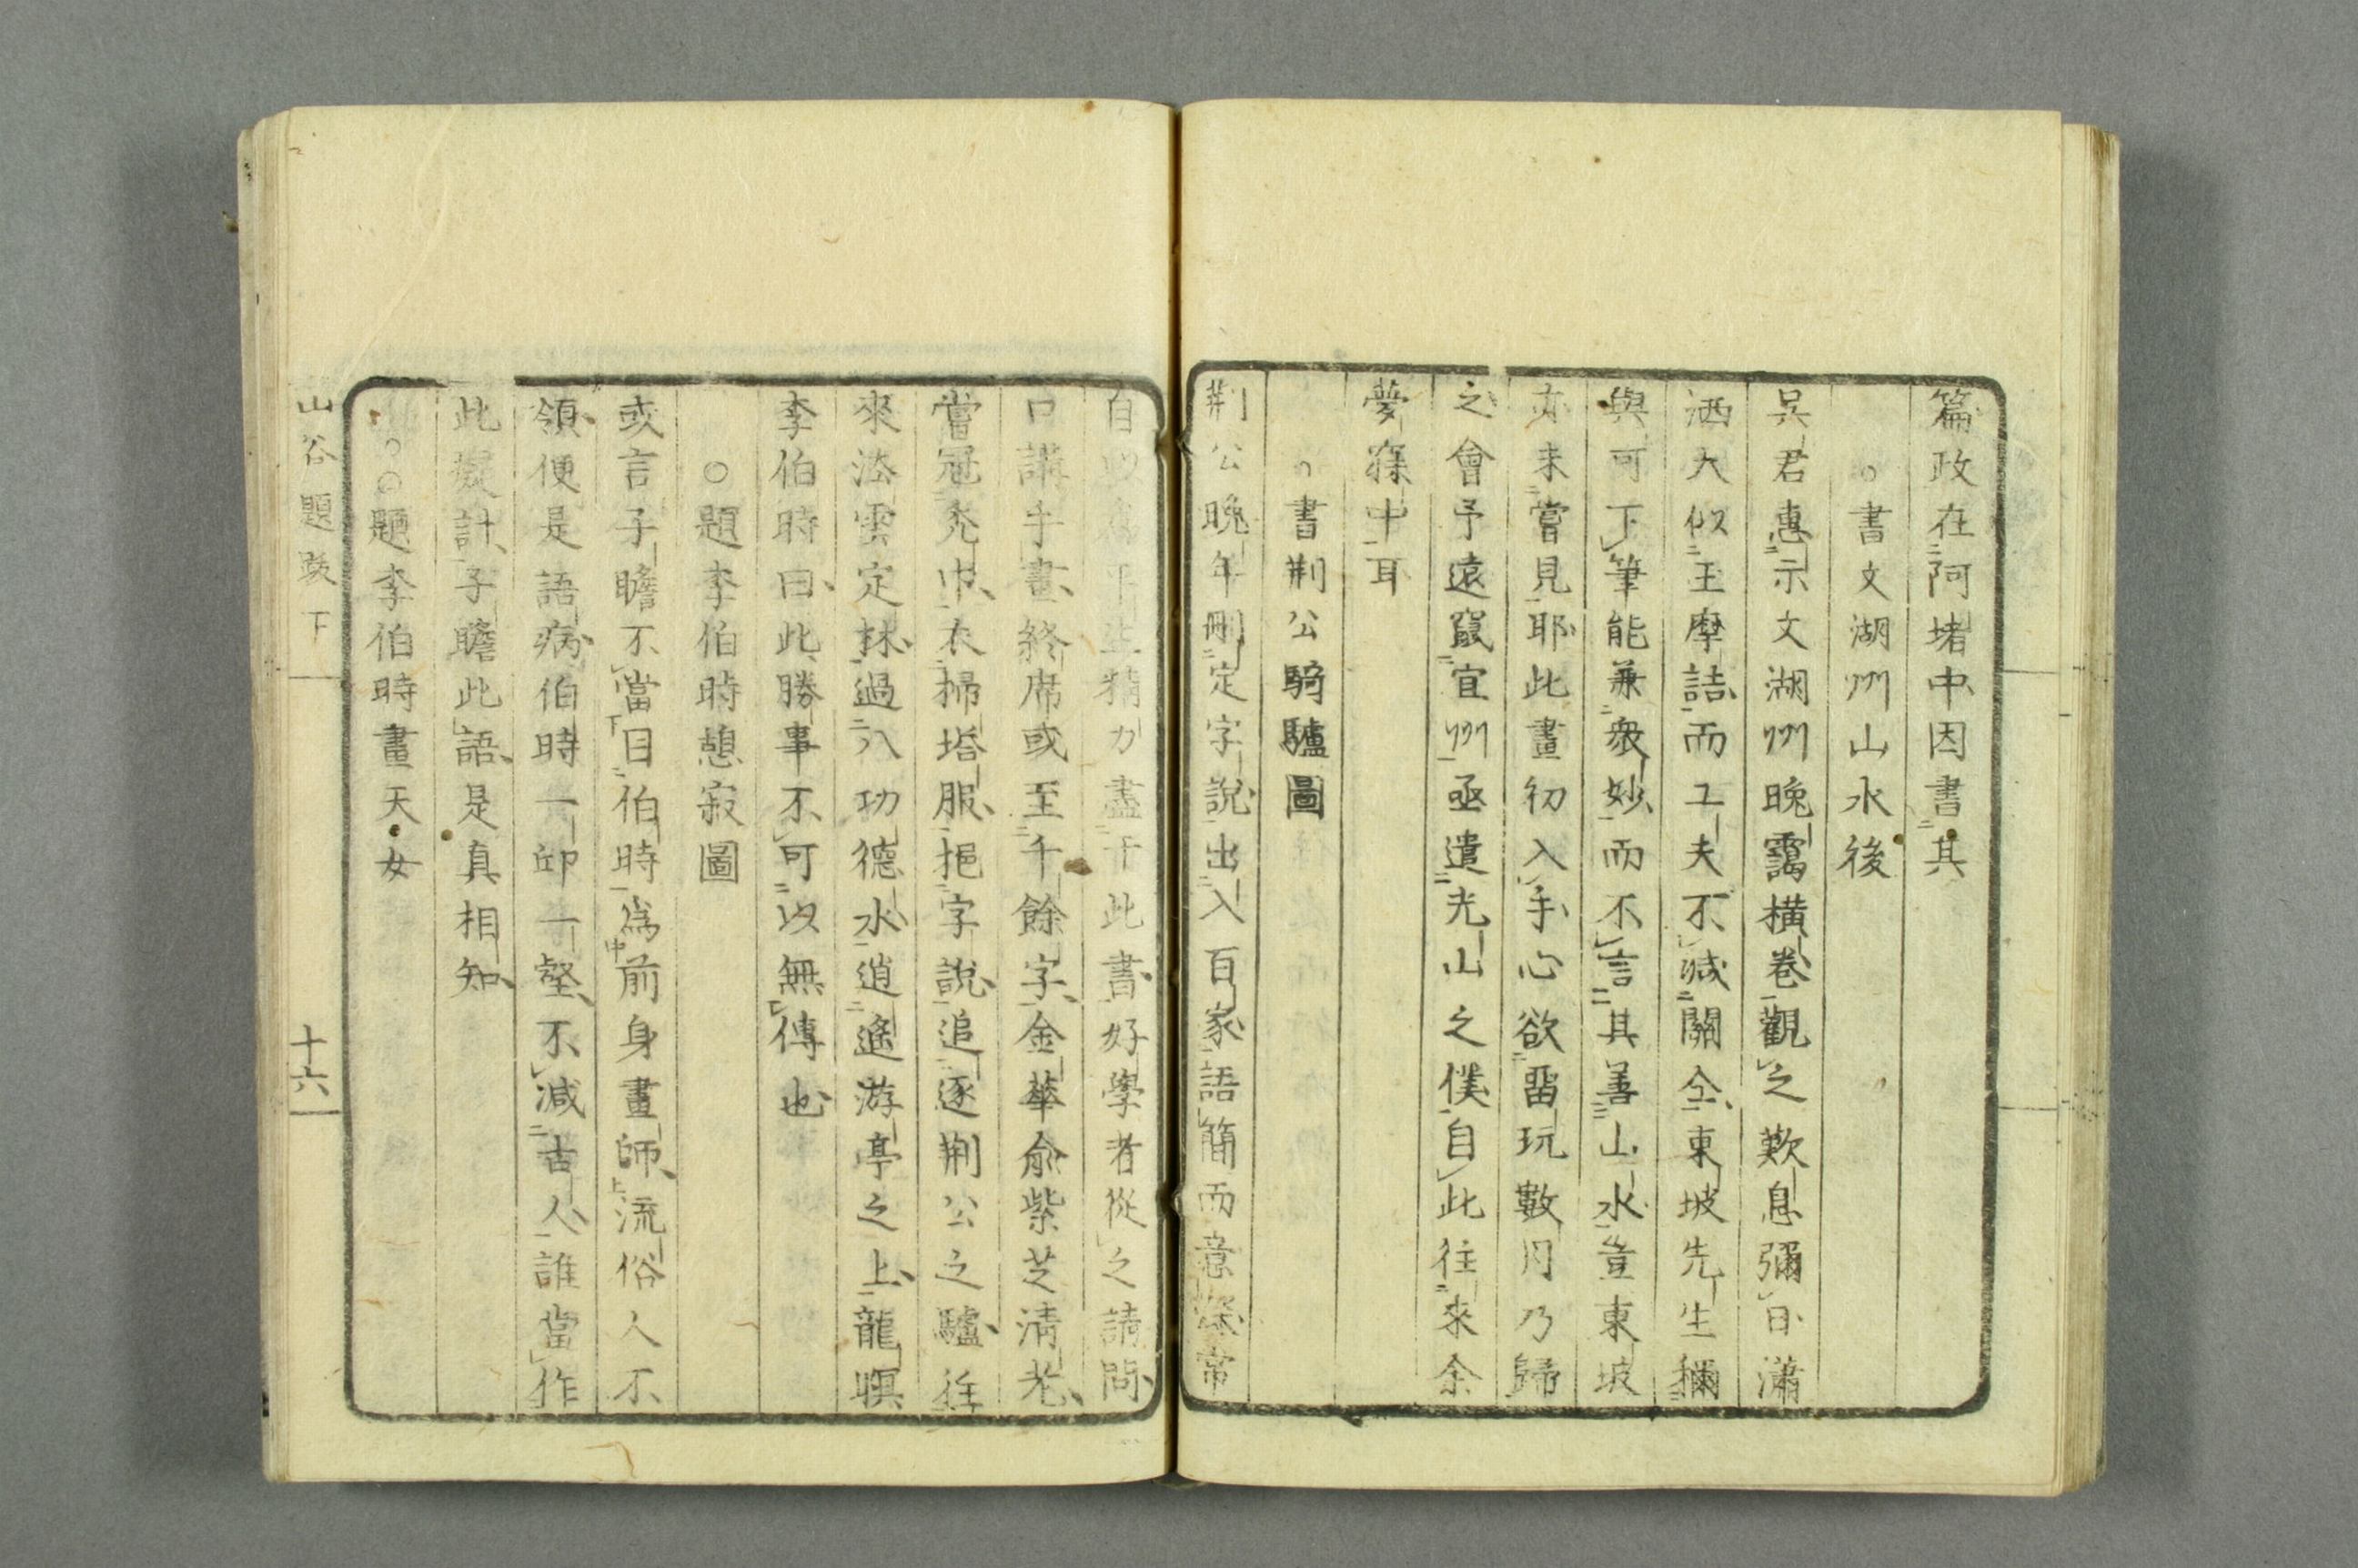 篇政在阿堵中因書其
○書文湖州山水後
吳君惠示文湖州晚靄橫卷觀之歎息彌日瀟
洒大似王摩詰而工夫不減關仝東坡先生稱
與可下筆能兼衆妙而不言其善山水豈東坡
亦未嘗見耶此畫初入手心欲畱玩數月乃歸
之會予遠竄宜州亟遣光山之僕自此往來余
夢寐中耳
○書荆公騎驢圖
荆公晚年刪定字說出入百家語簡而意深常
自以爲平生精力盡于此書好學者從之請問
口講手畫終席或至千餘字金華俞紫芝清老
嘗冠禿巾衣掃塔服抱字說追逐荆公之驢往
來法雲定林過八功德水逍遙游亭之上龍眠
李伯時曰此勝事不可以無傳也
○題李伯時憩寂圖
或言子瞻不當目伯時爲前身畫師流俗人不
領便是語病伯時一邱一壑不減古人誰當作
此癡計子瞻此語是真相知
○○題李伯時畫天女
山谷題跋下
十六